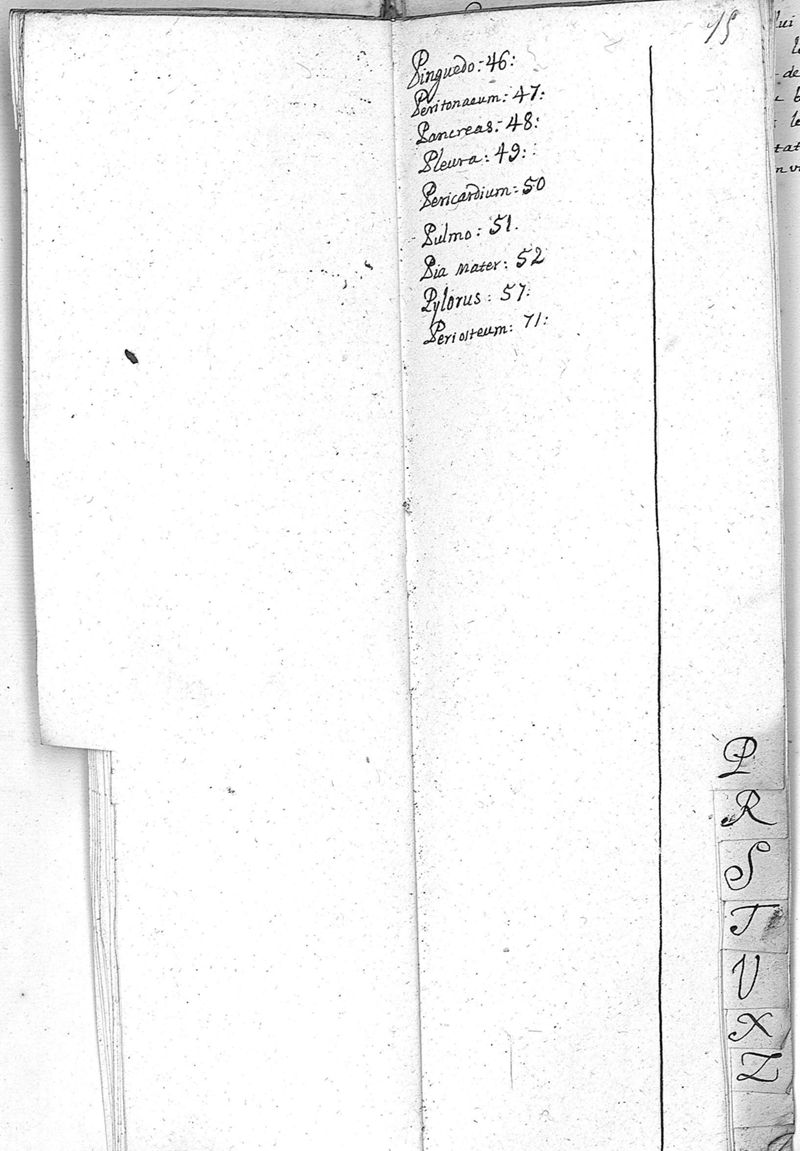 15
Pinguedo: 46:
Peritonaeum: 47:
Pancreas: 48:
Pleura: 49:
Pericardium: 50
Pulmo: 51.
Pia Mater: 52
Pylorus: 57:
Periosteum: 71:
P
R
S
T
V
X
Z